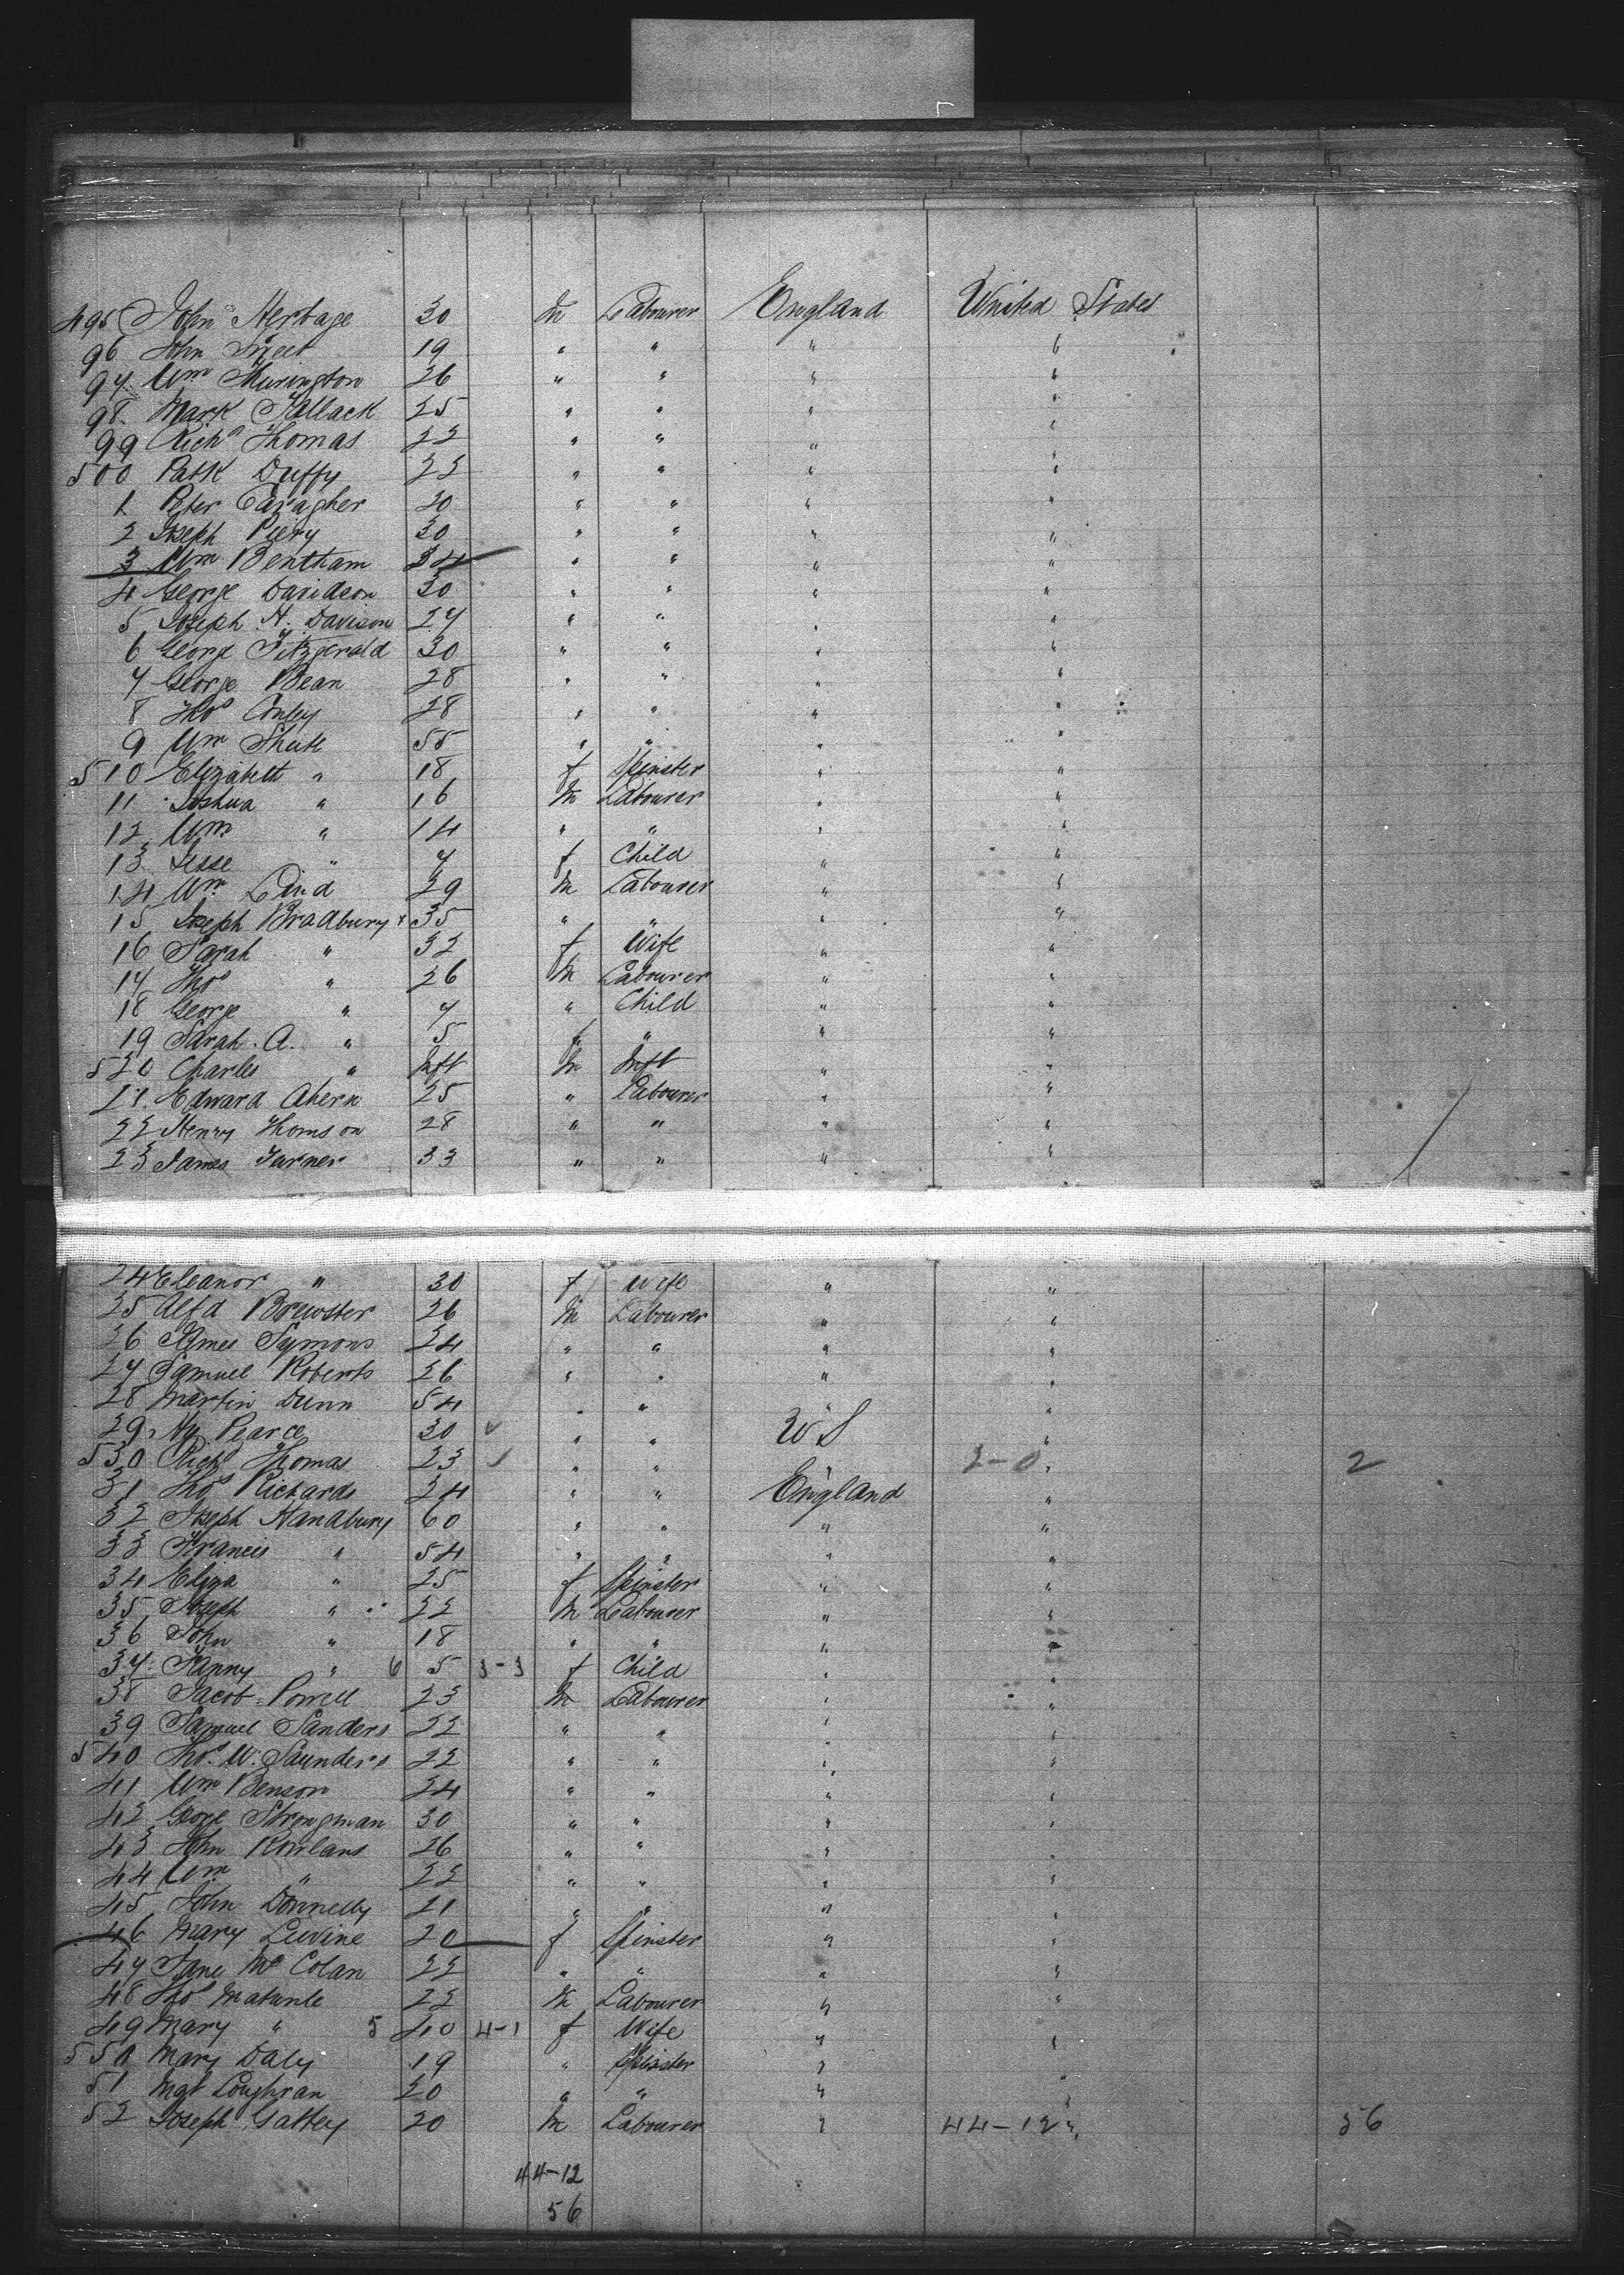 495 John Herbage 30 m Labourer England United States
96 John Sweet 19 " " " "
97 Wm Thurington 26 " " " "
98 Mark Tallack 25 " " " "
99 Richd Thomas 22 " " " "
500 Patk Duffy 22 " " " "
1 Peter Caragher 20 " " " "
2 Joseph Peery 30 " " " "
3 Wm Bentham 34 " " " "
4 George Davidson 30 " " " "
5 Joseph H. Davison 27 " " " "
6 George Fitzgerald 30 " " " "
7 George Bean 28 " " " "
8 Thos Conley 28 " " " "
9 Wm Shute 55 " " " "
510 Elizabeth " 18 f Spinster " "
11 Joshua " 16 m Labourer " "
12 Wm " 14 " " " "
13 Jesse " 7 f Child " "
14 Wm Laird 29 m Labourer " "
15 Joseph Bradbury x 35 " " " "
16 Sarah " 32 f Wife " "
17 Thos " 26 m Labourer " "
18 George " 7 " Child " "
19 Sarah. A. " 5 f " " "
520 Charles " Inft m Inft " "
21 Edward Ahern 25 " Labourer " "
22 Henry Thomson 28 " " " "
23 James Turner 33 " " " "
24 Eleanor " 30 f Wife " "
25 Alfd Brewster 26 m Labourer " "
26 James Symons 24 " " " "
27 Samuel Roberts 26 " " " "
28 Martin Dunn 54 " " " "
29 Hy Pearce 30 " " US "
530 Richd Thomas 23 " " " 2-0 " 2
31 Thos Richards 24 " " England "
32 Joseph Handbury 60 " " " "
33 Francis " 54 " " " "
34 Eliza " 25 f Spinster " "
35 Joseph " 22 m Labourer " "
36 John " 18 " " " "
37 Fanny " 6 5 3-3 f Child " "
38 Jacob Powell 23 m Labourer " "
39 Samuel Sanders 22 " " " "
540 Thos. W. Saunders 22 " " " "
41 Wm Benson 24 " " " "
42 George Strongman 30 " " " "
43 John Rowlans 26 " " " "
44 Wm " 22 " " " "
45 John Donnelly 21 " " " "
46 Mary Levine 20 f Spinster " "
47 Jane McColan 22 " " " "
48 Thos 22 m Labourer " "
49 Mary " 5 40 4-1 f Wife " "
550 Mary Daly 19 " Spinster " "
51 Mgt Loughran 20 " " " "
52 Joseph Gattey 20 m Labourer " 44-12 " 56
44-12
56